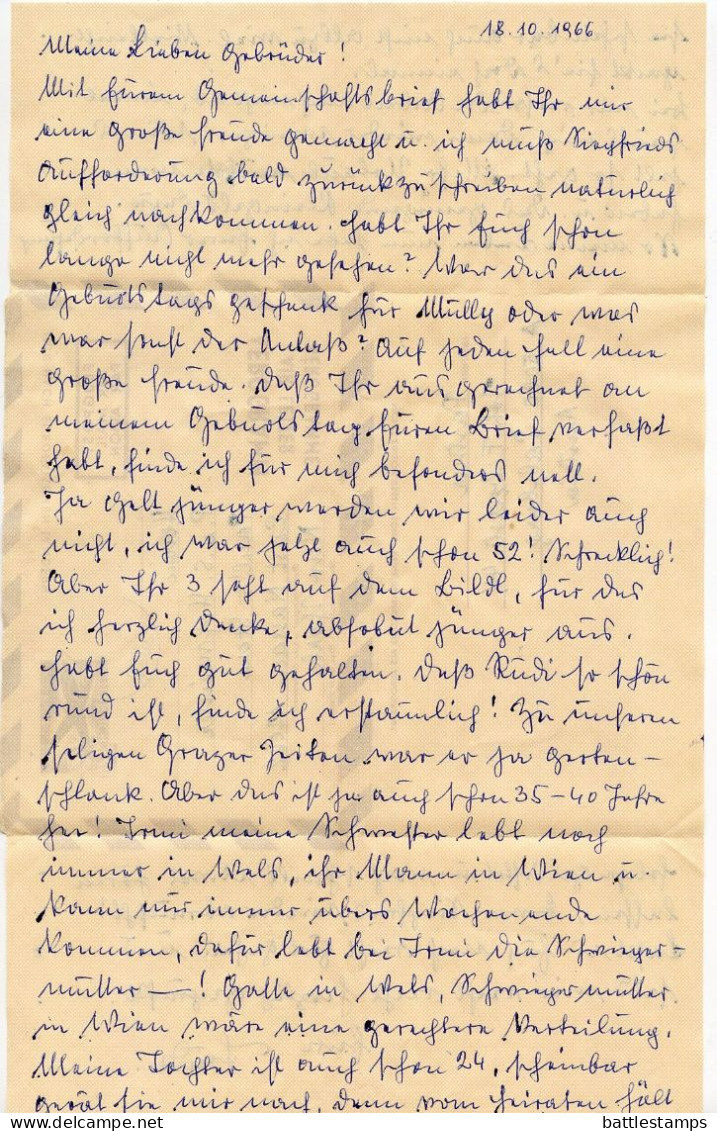 18.10.1966
Meine Lieben Gebrüder!
Mit Eurem Gemeinschaftsbrief habt Ihr mir
eine große Freude gemacht u. ich muß Siegfrieds
Aufforderung bald zurückzuschreiben natürlich
gleich nachkommen. Habt Ihr Euch schon
lange nicht mehr gesehen? War das ein
Geburtstagsgeschenk für Mully oder was
war sonst der Anlaß? Auf jeden Fall eine
große Freude. Daß Ihr ausgerechnet an
meinem Geburtstag Euren Brief verfaßt
habt, finde ich für mich besonders nett.
Ja gelt jünger werden wir leider auch
nicht, ich war jetzt auch schon 52! Schrecklich!
Aber Ihr 3 seht auf dem Bildl, für das
ich herzlich danke, absolut jünger aus.
Habt Euch gut gehalten. Daß Rudi so schön
rund ist, finde ich erstaunlich! Zu unseren
seligen Grazer Zeiten war er ja gerten-
schlank. Aber das ist ja auch schon 35-40 Jahre
her! Irmi meine Schwester lebt noch
immer in Wels, ihr Mann in Wien u.
kann nur immer übers Wochenende
kommen, dafür lebt bei Irmi die Schwieger-
mutter —! Gatte in Wels, Schwiegermutter
in Wien wäre eine gerechtere Verteilung.
Meine Tochter ist auch schon 24, scheinbar
gerät sie mir nach, denn vom Heiraten hält
battlestamps